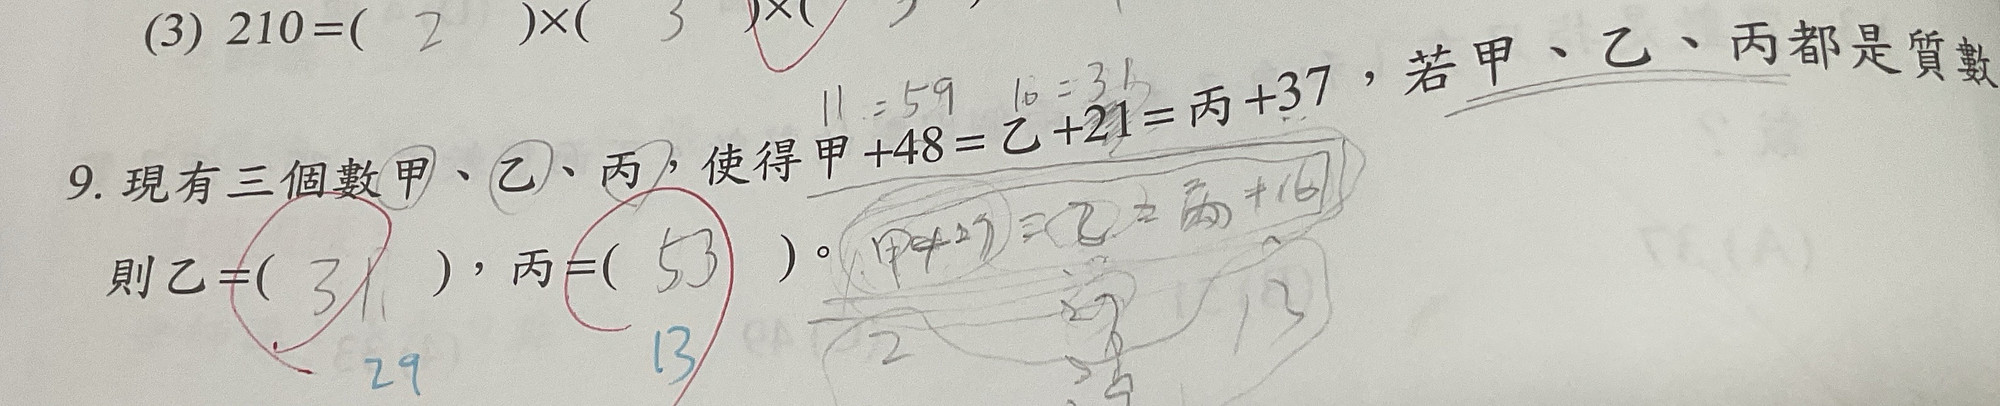 (3) 210=( 2 )×( 3 )×(
11 = 59
9. 現有三個數甲、乙、丙，使得甲+48=乙+21=丙+37，若甲、乙、丙都是質數
則乙=( 31 )，丙=( 53 )。
甲+27=乙=丙+16
29
13
2
29
13